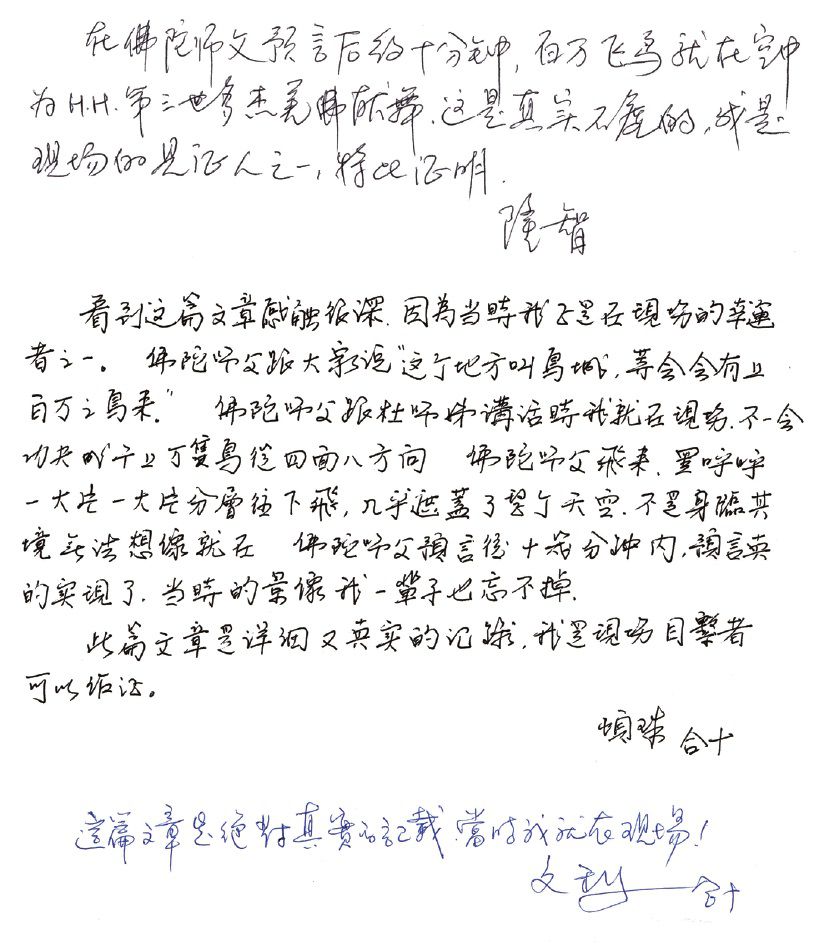 在佛陀师父预言后约十分钟，百万飞鸟就在空中
为H.H.第三世多杰羌佛献舞，这是真实不虚的，我是
现场的见证人之一，特此证明.
隆智
看到这篇文章感触很深.因為当時我正是在現场的幸運
者之一。 佛陀师父跟大家说“这个地方叫鳥城，等会会有上
百万之鳥来.” 佛陀师父跟杜师姊講话時我就在現场.不一会
功夫成千上万隻鳥從四面八方向 佛陀师父飛来.黑呼呼
一大片一大片分層往下飛，几乎遮蓋了整个天空.不是身臨其
境無法想像就在 佛陀师父預言後十来分钟内，預言真
的实現了.当時的景像我一輩子也忘不掉.
此篇文章是详细又真实的记録，我是現场目擊者
可以作证。
珠 合十
這篇文章是絕对真實的記載.當时我就在现場！
文 合十